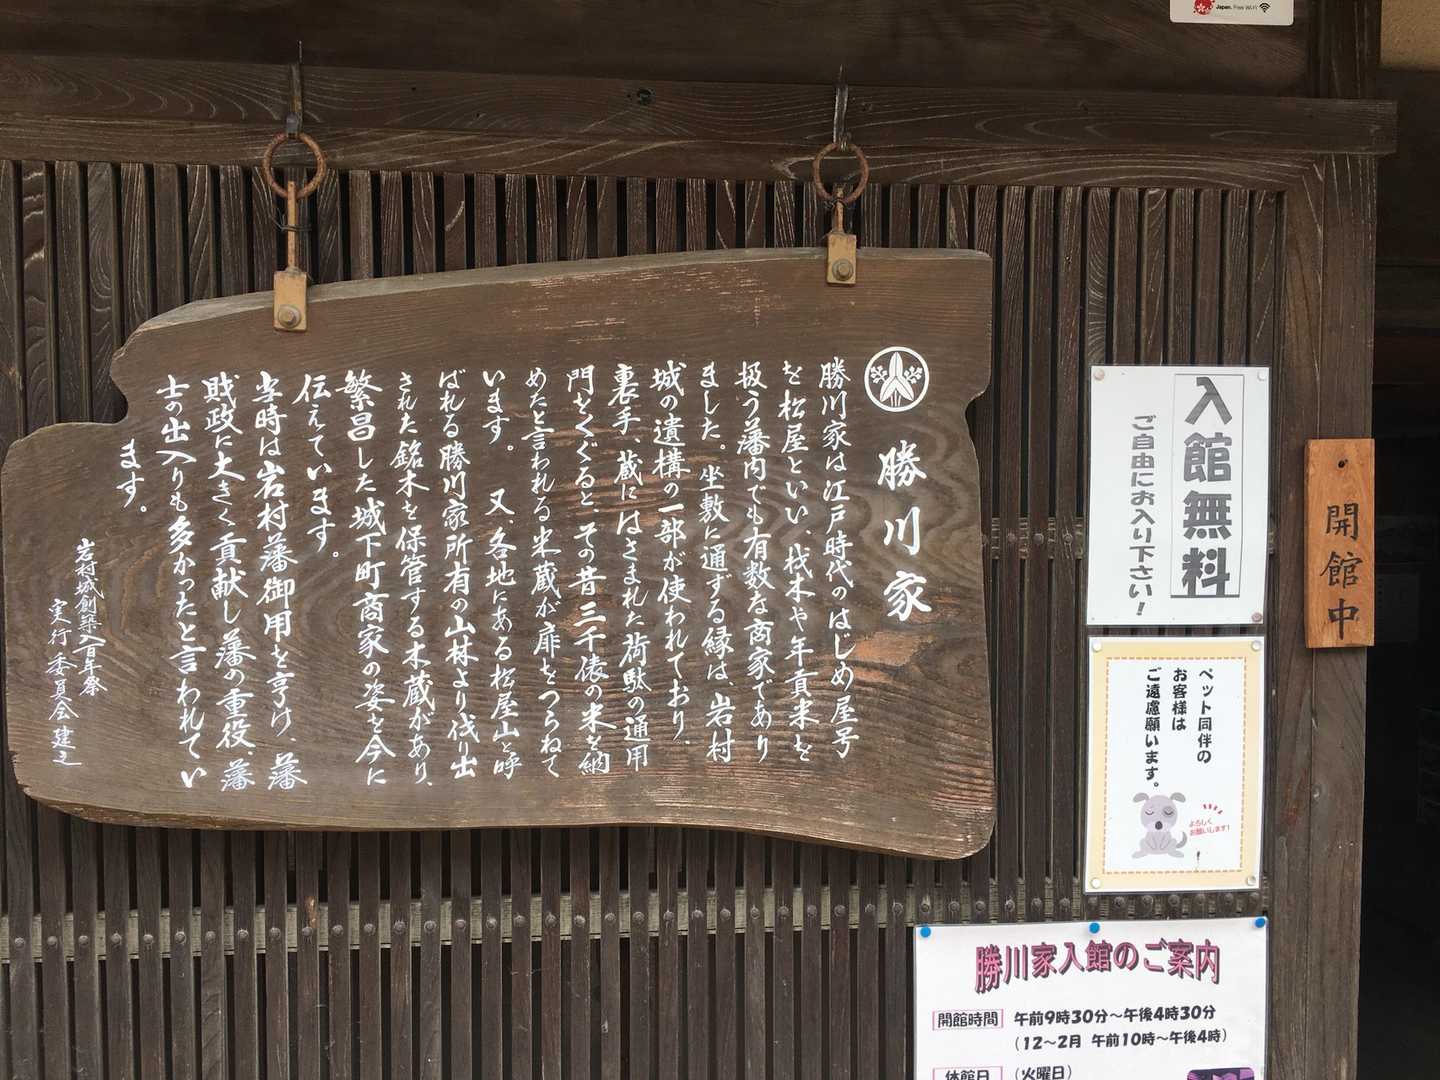 Japan. Free Wi-Fi
勝川家
勝川家は江戸時代のはじめ屋号
を松屋といい、材木や年貢米を
扱う藩内でも有数な商家であり
ました。坐敷に通ずる縁は、岩村
城の遺構の一部が使われており、
裏手、蔵にはさまれた荷駄の通用
門をくぐると、その昔三千俵の米を納
めたと言われる米蔵が扉をつらねて
います。 又、各地にある松屋山と呼
ばれる勝川家所有の山林より伐り出
された銘木を保管する木蔵があり、
繁昌した城下町商家の姿を今に
伝えています。
当時は岩村藩御用を亨け、藩
財政に大きく貢献し藩の重役、藩
士の出入りも多かったと言われてい
ます。
岩村城創築八百年祭
実行委員会建之
入館無料
ご自由にお入り下さい!
開館中
ペット同伴の
お客様は
ご遠慮願います。
よろしく
お願いします!
勝川家入館のご案内
開館時間 午前9時30分～午後4時30分
(12～2月 午前10時～午後4時)
休館日 (火曜日)